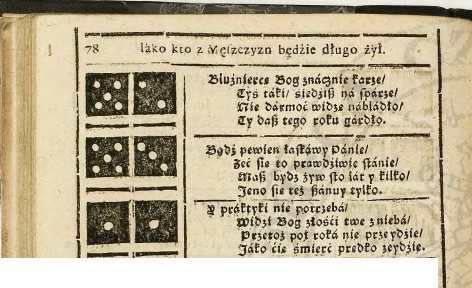 78 Iáko kto z Mężczyzn będzie długo żył.
Bluźnierce Bog znácznie karze/
Tyś táki/ siedzisz ná sparze/
Nie darmoć widzę nábládło/
Ty dasz tego roku gárdło.
Bądź pewien łáskáwy Pánie/
Żeć się to prawdźiwie stánie/
Masz bydź żyw sto lat y kilko/
Jeno się też szánuy tylko.
Y práktyki nie potrzebá/
Widźi Bog złośći twe z niebá/
Przetoż poł roká nie przeydźie/
Jáko ćię śmierć prędko zeydźie.